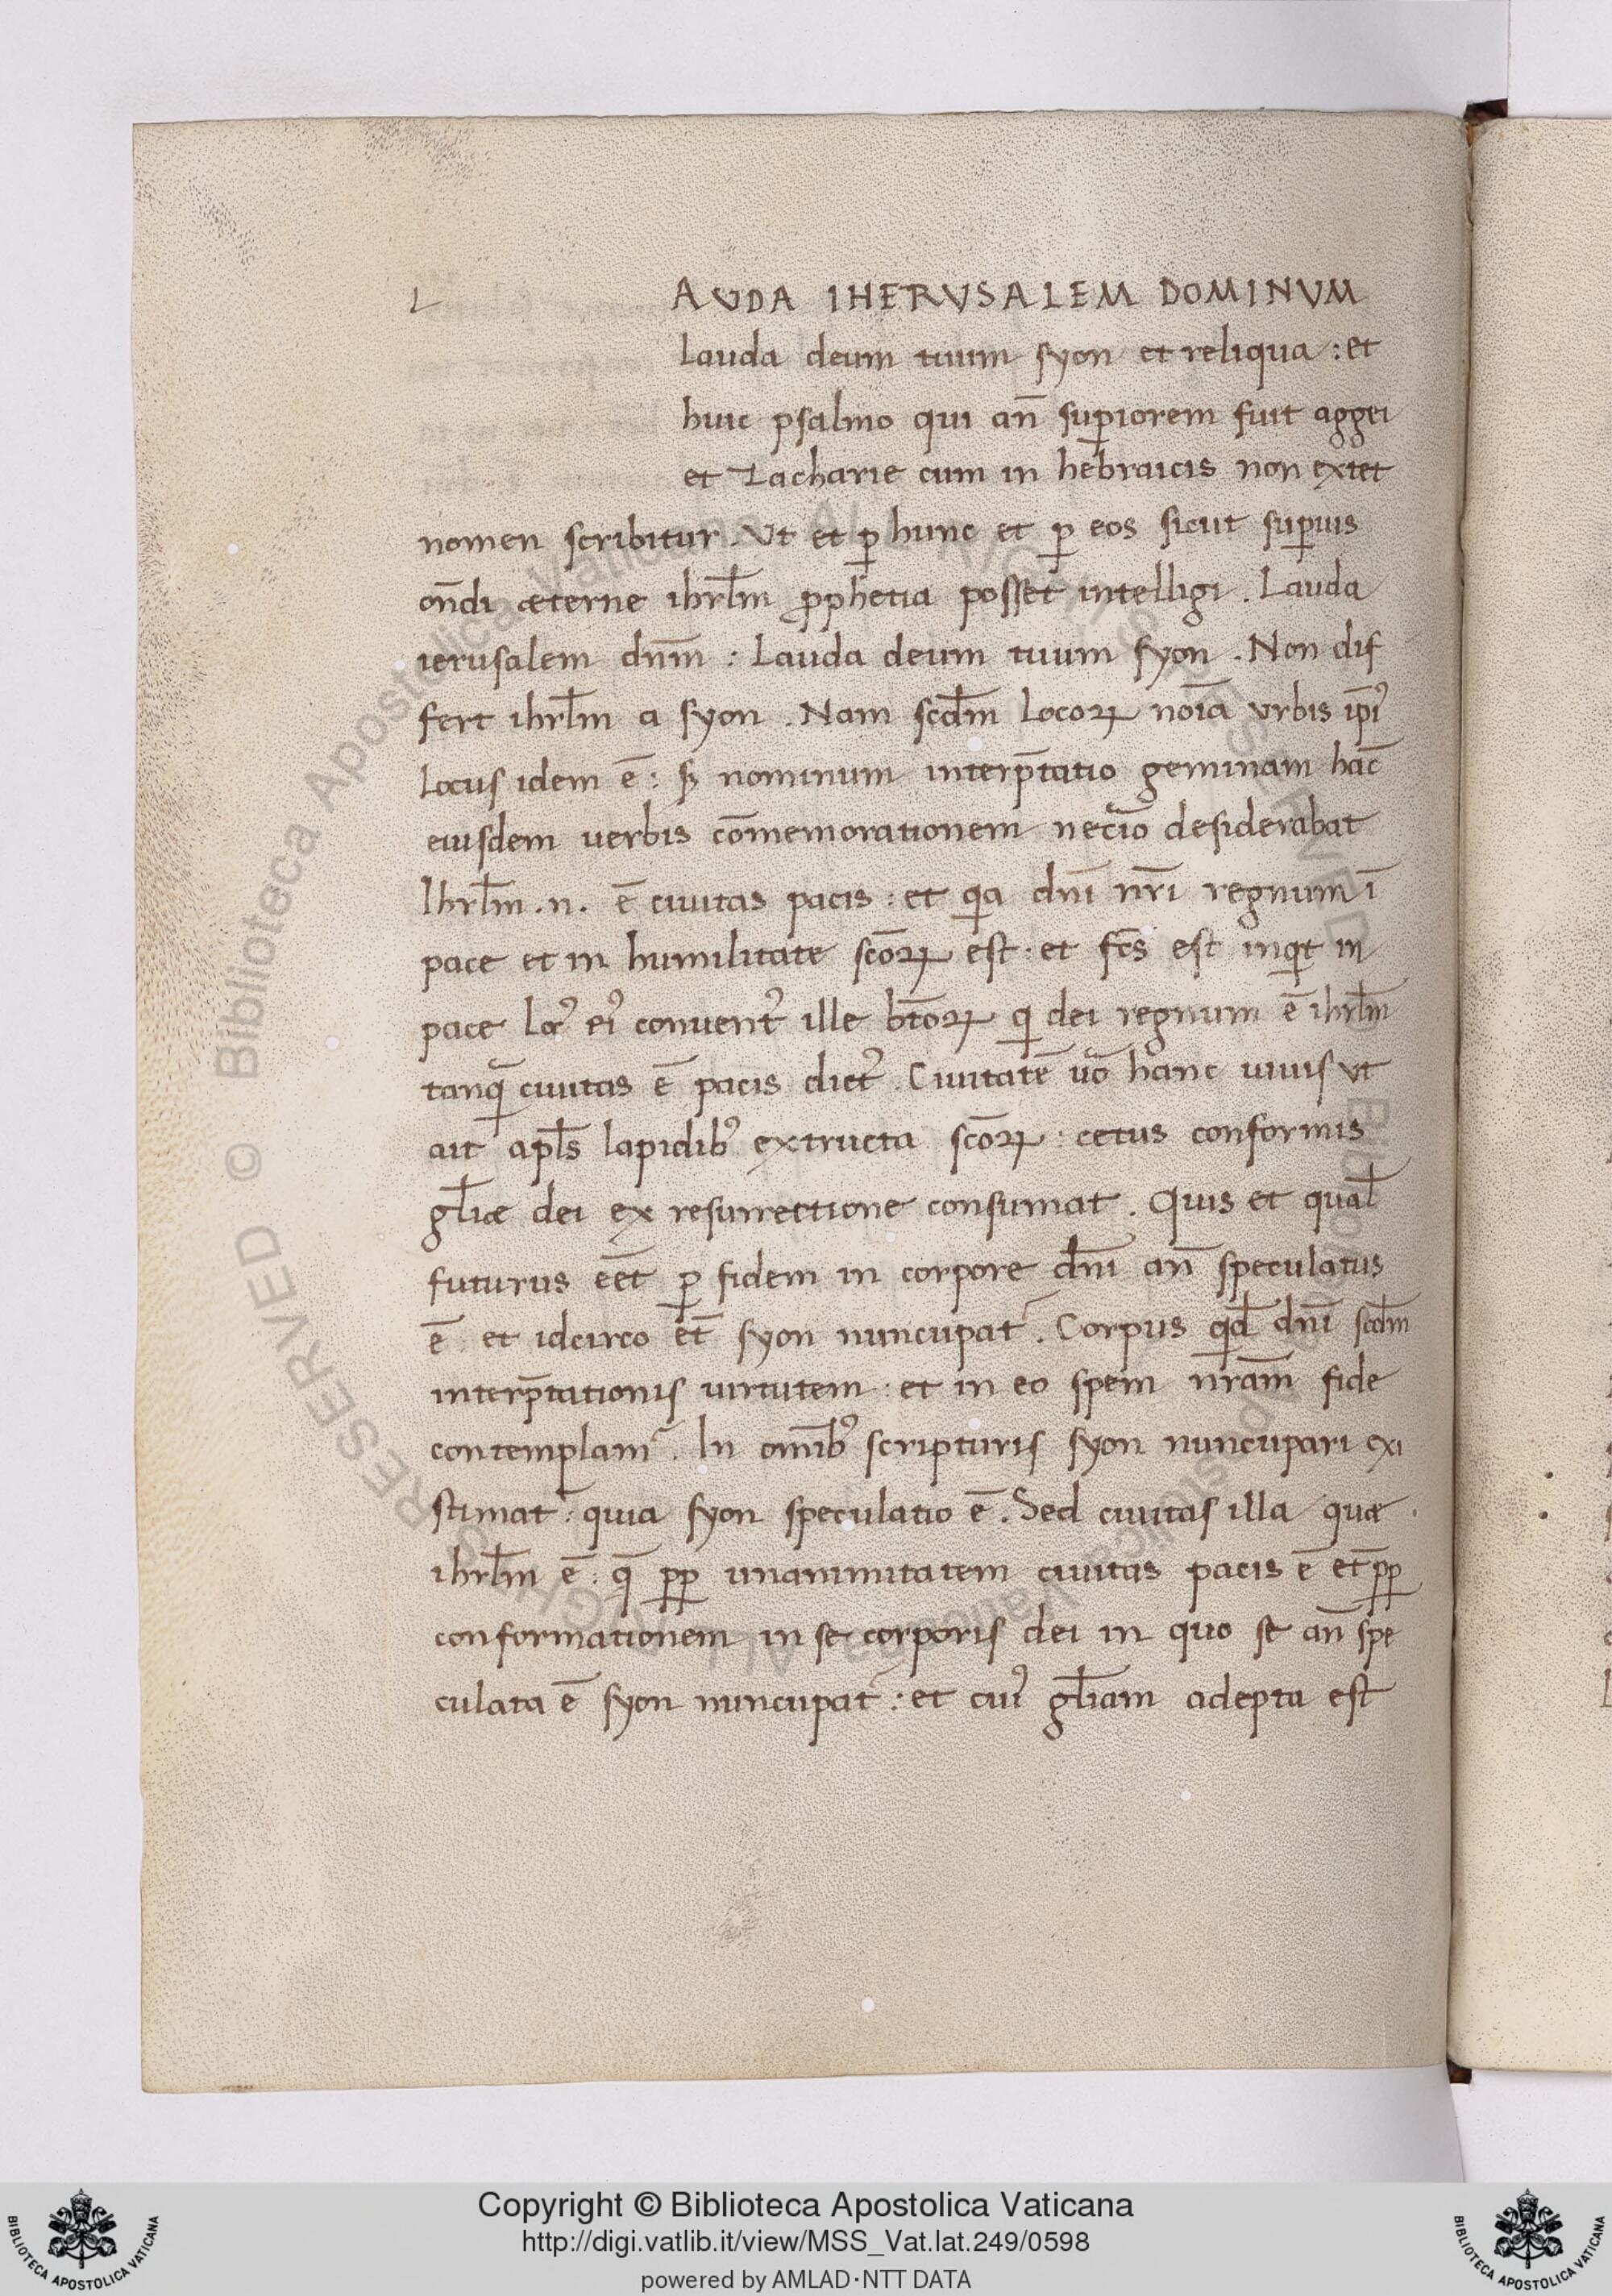 L AUDA IHERVSALEM DOMINVM
Lauda deum tuum syon et reliqua : et
huic psalmo qui an̄ sup̱iorem fuit aggei
et Zacharie cum in hebraicis non extet
nomen scribitur . Vt et ꝑ hunc et ꝑ eos sicut suꝑius
on̄di æterne ihrl̄m ꝓphetia posset intelligi . Lauda
ierusalem dnm̄ : Lauda deum tuum syon . Non dif
fert ihrl̄m a syon . Nam scdm̄ locoꝝ noīa vrbis ip̄iꝰ
locus idem ē : sꝫ nominum interp̄tatio geminam hāc
eiusdem uerbis cōmemorationem necio̅ desiderabat
Ihrl̄m .n. ē ciuitas pacis : et q̇a dn̄i nr̄i regnum ī
pace et in humilitate sc̄oꝝ est : et fc̄s est inqͥt in
pace locꝰ eiꝰ conuentꝰ ille bt̄oꝝ qͥ dei regnum ē ihrl̄m
tanqᷓ ciuitas ē pacis dictꝰ . Ciuitatē uo̅ hanc uiuis vt
ait apl̄s lapidibꝰ extructa sc̄oꝝ : cetus conformis
gl̄iæ dei ex resurrectione consumat . Quis et qual̄
futurus eet̄ ꝑ fidem in corpore dn̄i an̄ speculatus
ē : et idcirco et̄ syon nuncupat᷑ . Corpus qͥd̄ dn̄i scdm̄
interp̄tationis uirtutem : et in eo spem nr̄am fide
contemplam᷑ . In omībꝰ scripturis syon nuncupari exi
stimat᷑ : quia syon speculatio ē . Sed ciuitas illa quæ
ihrl̄m ē : q̄ ꝓꝑ unanimitatem ciuitas pacis ē et̄ ꝓꝑ
conformationem in se corporis dei in quo se an̄ spe
culata ē syon nuncupat᷑ : et cuiꝰ gl̄iam adepta est
© Biblioteca Apostolica Vaticana ALL RIGHTS RESERVED
© Biblioteca Apostolica Vaticana ALL RIGHTS RESERVED
Copyright © Biblioteca Apostolica Vaticana
http://digi.vatlib.it/view/MSS_Vat.lat.249/0598
powered by AMLAD·NTT DATA
BIBLIOTECA APOSTOLICA VATICANA
BIBLIOTECA APOSTOLICA VATICANA